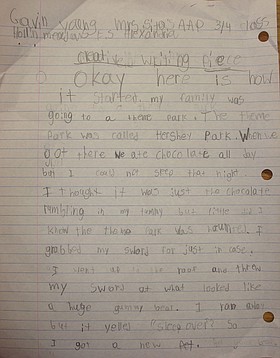 Gavin young Mrs. Sita's AAP 3/4 class
Hollin meadows E.S Alexandria
creative writing piece
Okay here is how
it started. my family was
going to a theme park. The theme
Park was called Hershey Park. When we
got there we ate chocolate all day
but I could not sleep that night.
I thought it was just the chocolate
rumbling in my tummy but little did I
know the theme park was haunted. I
grabbed my sword for just in case.
I went up to the roof and threw
my sword at what looked like
a huge gummy bear. I ran away
but it yelled "sleepover? So
I got a new pet. So